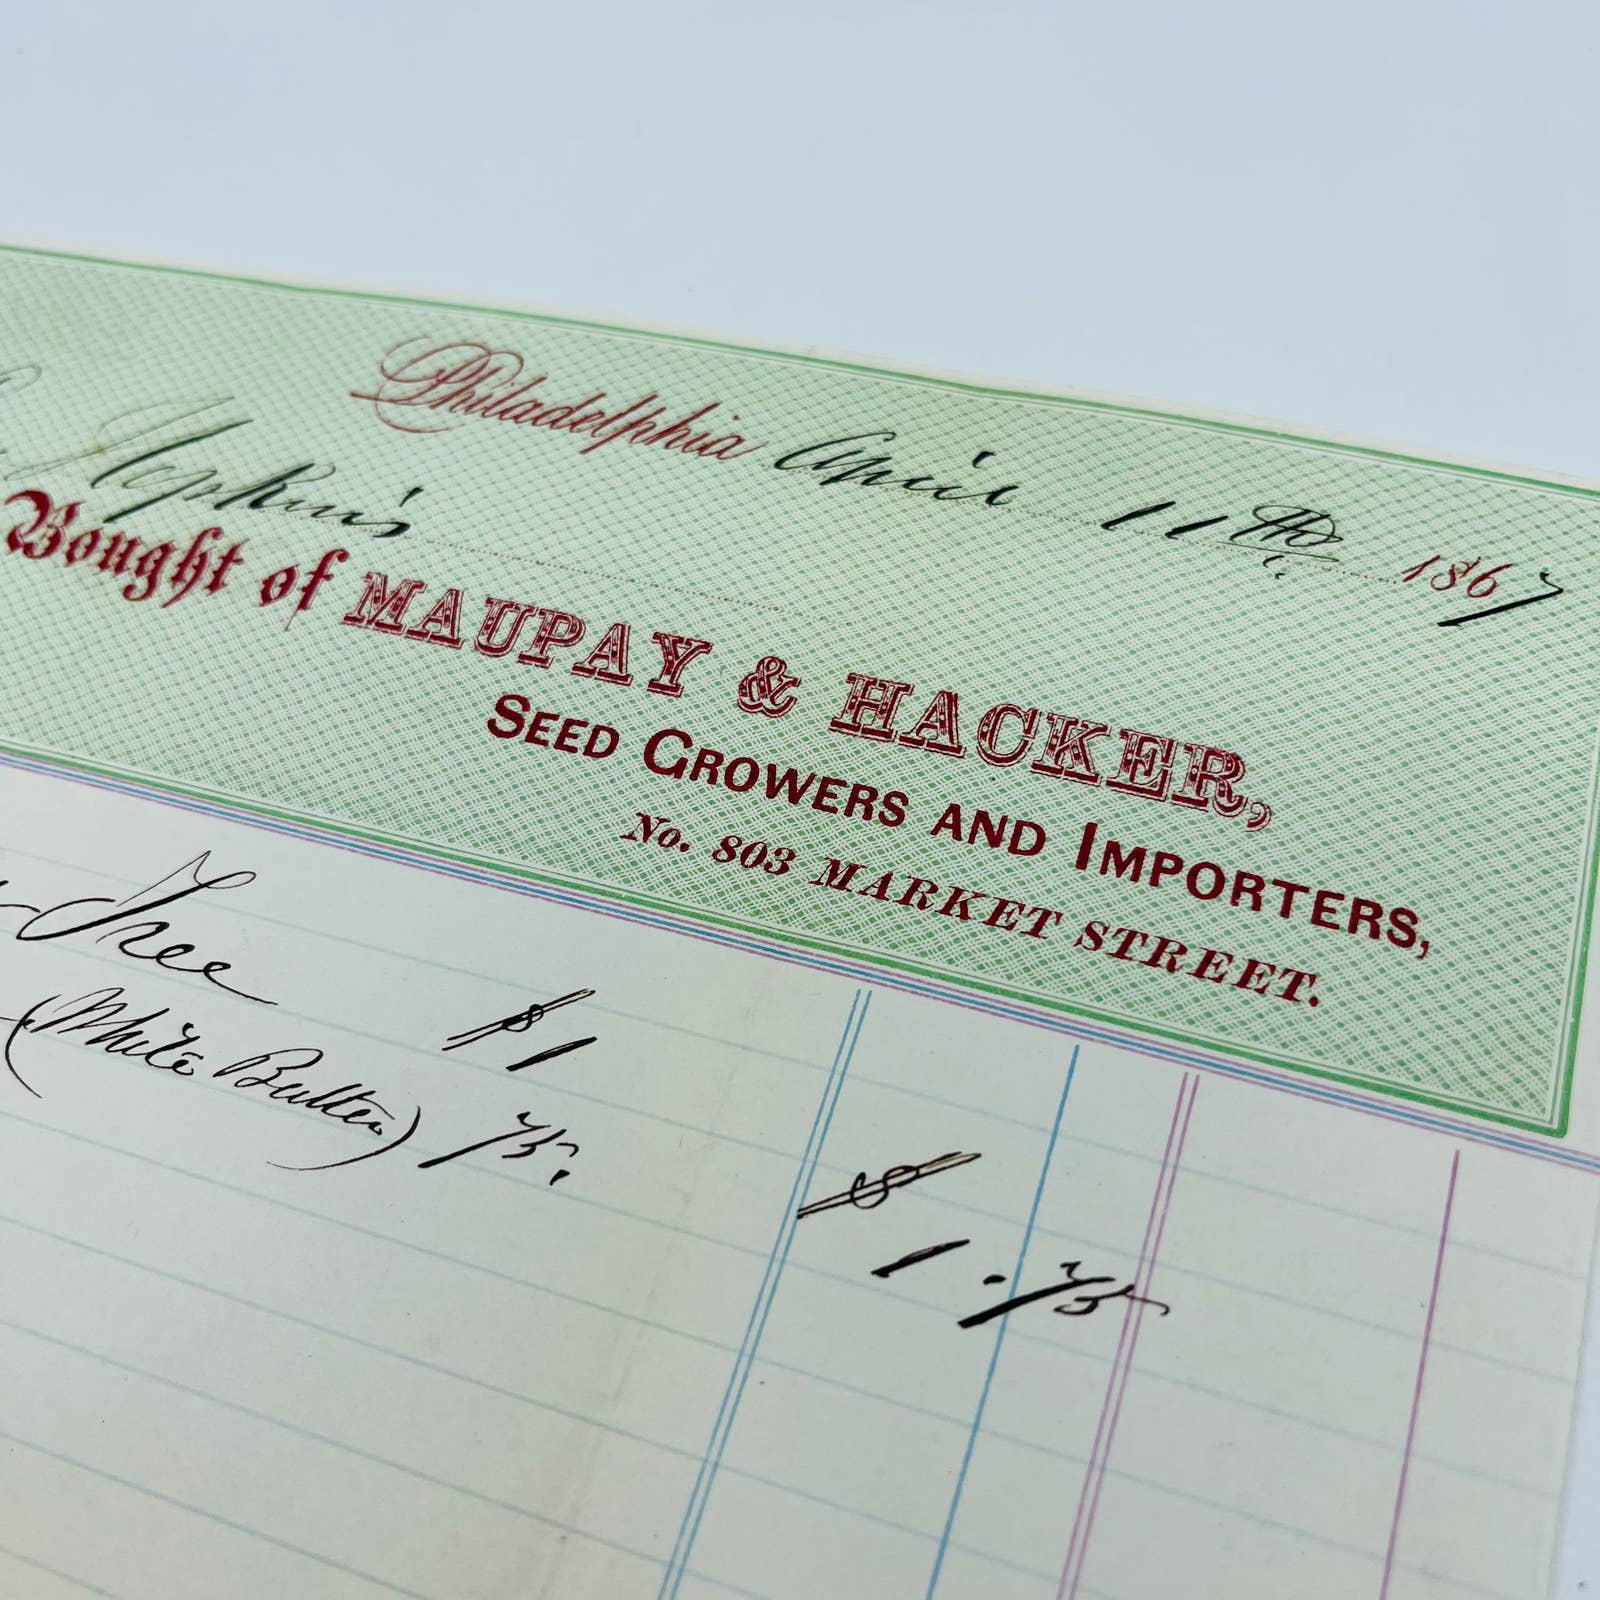 Philadelphia April 11th, 1867
Hopkins
Bought of MAUPAY & HACKER,
SEED GROWERS AND IMPORTERS,
No. 803 MARKET STREET.
Tree $1
(White Butter) 75.
$
1.75